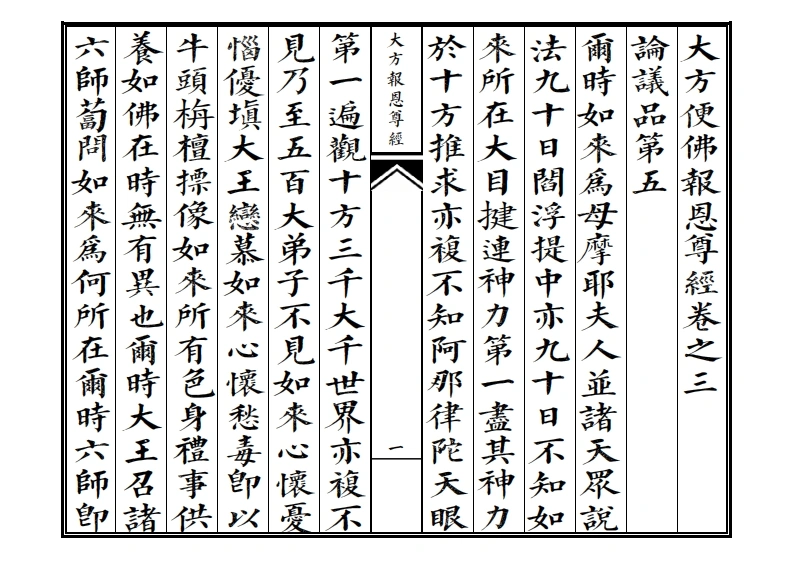 大方便佛報恩尊經卷之三
論議品第五
爾時如來爲母摩耶夫人並諸天眾說
法九十日閻浮提中亦九十日不知如
來所在大目揵連神力第一盡其神力
於十方推求亦複不知阿那律陀天眼
大方報恩尊經
一
第一遍觀十方三千大千世界亦複不
見乃至五百大弟子不見如來心懷憂
惱優塡大王戀慕如來心懷愁毒卽以
牛頭栴檀摽像如來所有色身禮事供
養如佛在時無有異也爾時大王召諸
六師蔔問如來爲何所在爾時六師卽